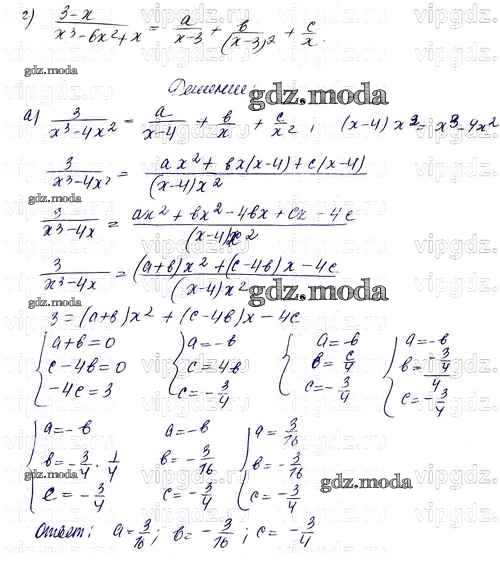 г) \frac{3-x}{x^3-6x^2+x} = \frac{a}{x-3} + \frac{в}{(x-3)^2} + \frac{c}{x}.
gdz.moda
Решение:
а) \frac{3}{x^3-4x^2} = \frac{a}{x-4} + \frac{в}{x} + \frac{c}{x^2}; (x-4)x^2 = x^3-4x^2
gdz.moda
\frac{3}{x^3-4x^2} = \frac{ax^2+вx(x-4)+c(x-4)}{(x-4)x^2}
gdz.moda
\frac{3}{x^3-4x} = \frac{ax^2+вx^2-4вx+cx-4c}{(x-4)x^2}
\frac{3}{x^3-4x} = \frac{(a+в)x^2+(c-4в)x-4c}{(x-4)x^2}
gdz.moda gdz.moda
3=(a+в)x^2+(c-4в)x-4c
{a+в=0 {a=-в {a=-в {a=-в
c-4в=0 c=4в в=\frac{c}{4} в=\frac{-\frac{3}{4}}{4}
-4c=3 c=-\frac{3}{4} c=-\frac{3}{4} c=-\frac{3}{4}
{a=-в a=-в {a=\frac{3}{16}
в=-\frac{3}{4}·\frac{1}{4} в=-\frac{3}{16} в=-\frac{3}{16}
c=-\frac{3}{4} c=-\frac{3}{4} c=-\frac{3}{4}
gdz.moda gdz.moda
Ответ: a=\frac{3}{16}; в=-\frac{3}{16}; c=-\frac{3}{4}